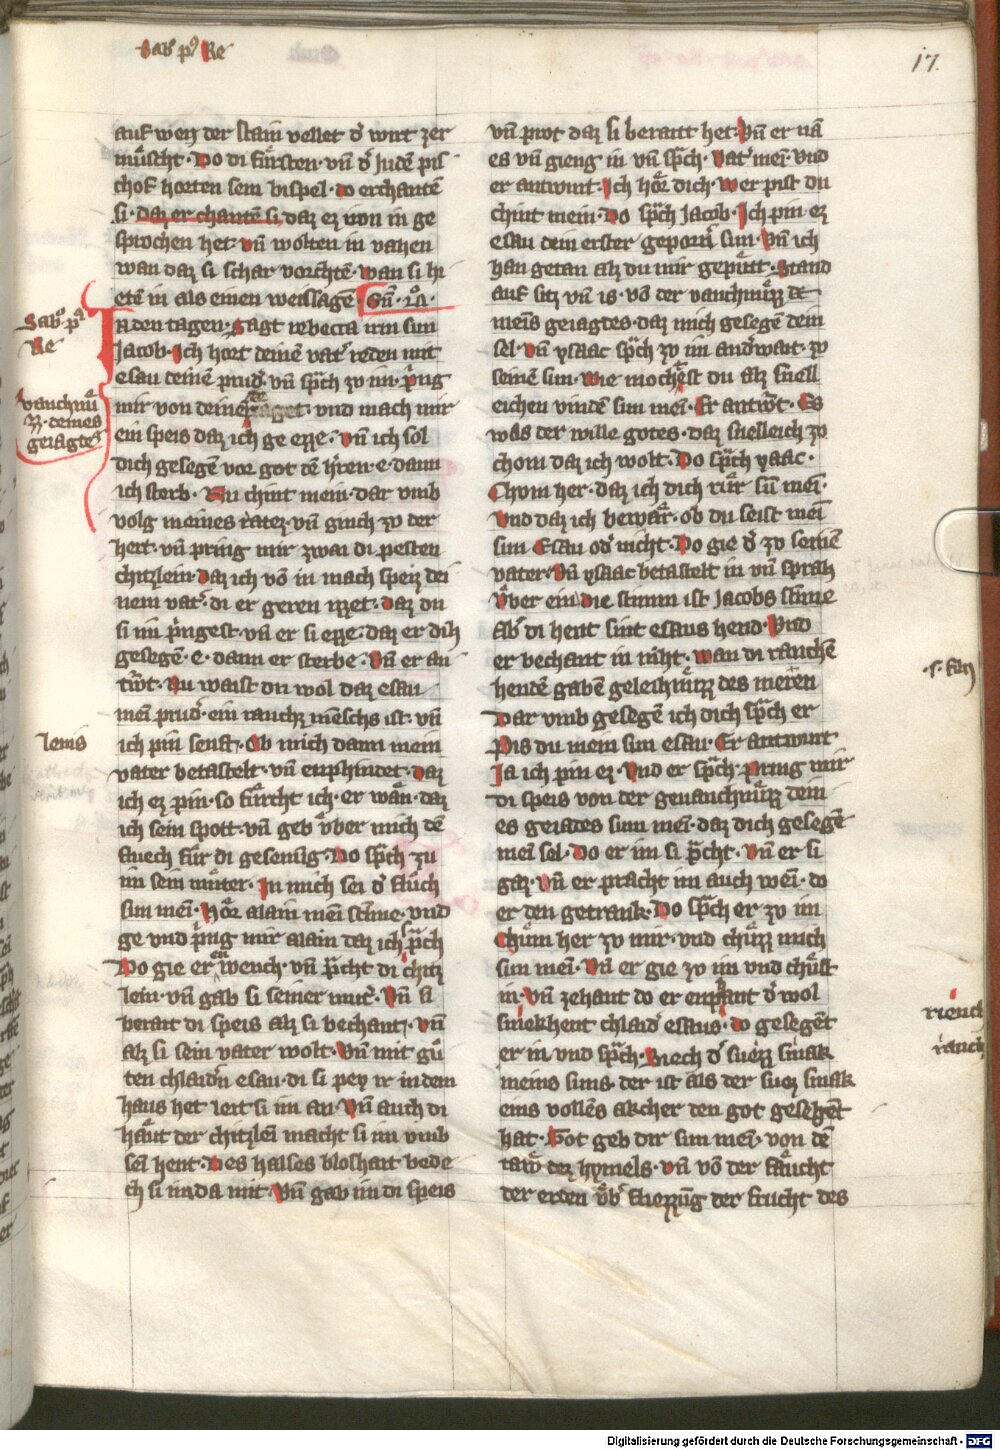 Sab͛ p͛ Re
17.
auf wen der stain vellet d͛ wirt zer
müscht · Do di fürsten · vn̄ d͛ Judē pis
chof horten sein bispel · do erchantē
si · daz er chantē si daz ez von in ge
sprochen het · vn̄ wolten in vahen
wan daz si schar vorchtē · wan si hi
etē in als einen weissage ·
Sabo͛ p͛
Re
In den tagen · Sagt rebecca irm sun
Jacob · Ich hort deinē vat͛ reden mit
esau deinē prud͛ · vn̄ sp̄ch zv im · p̄ng
vanchnü
zz · deines
geiagtes
mir von deinē iaget · vnd mach mir
ein speis daz ich ge ezze · vn̄ ich sol
dich gesegē vor got dē h̄ren · e · dann
ich sterb · Nu chint mein · dar vmb
volg meines ratez · vn̄ ginch zv der
hert · vn̄ pring mir zwai di pesten
chitzlein · Daz ich vō in mach speiz dei
nem vat͛ · di er geren izzet · daz du
si im p̄ngest · vn̄ er si ezze · daz er dih
gesegē · e · dann er sterbe · Vn̄ er an
tw̄t · Nu waist du wol daz esau
mei prud͛ · ein rauchz mēschs ist · vn̄
lenis
ich pin senft · Ob mich dann mein
vater betastelt · vn̄ enphindet · Daz
ich ez pin · so fürcht ich · er wän · daz
ich sein spott · vn̄ geb vber mich dē
fluech für di gesenung · Do sp̄ch zu
im sein muter · In mich sei d͛ flüch
sun mei · Hör alain mei stīme · vnd
ge vnd p̄ng mir alain daz ich sp̄ch
Do gie er en wench · vn̄ p̄cht di chitz
lein · vn̄ gab si seiner mut͛ · Vn̄ si
berait di speis alz si bechant · vn̄
alz si sein vater wolt · Vn̄ mit gü
ten chlaidn̄ esau · di si pey ir in dem
haus het lert si im an · Vn̄ auch di
haut der chitzlei macht si im vmb
sei hent · Des halses bloshait bede
ch si im da mit · Vn̄ gab im di speis
vn̄ prot daz si berait het · Vn̄ er nā
es vn̄ gieng in vn̄ sp̄ch · Vat͛ mei · vnd
er antwurt · Ich hör dich · wer pist du
chint mein · Do sp̄ch Jacob · Ich pin ez
esau dein erster geporn̄ sun · Vn̄ ich
han getan alz du mir gepütt · Stand
auf sitz vn̄ is · vō der vanchnüzz
meis geiagtes · daz mich gesegē dein
sel · Vn̄ ysaac sp̄ch zv im and͛wait · zv
seinē sun · Wie mochest du alz snell
eichen vindē sun mei · Er antw̄t · Es
was der wille gotes · daz snelleich zv
chom daz ich wolt · Do sp̄ch ysaac ·
Chvm her · daz ich dich rür sun mei ·
Vnd daz ich bewär · ob du seist mei
sun Esau od͛ nicht · Do gie d͛ zv seinē
vater · Vn̄ ysaac betastelt in vn̄ sprah
Vber ein die stimm ist Jacobs stīme
Ab͛ di hent sint esaus hend · Vnd
er bechant in niht · wan di rauchē
hendē gabē geleichnüzz des merēn
Dar vmb gesegē ich dich sp̄ch er
Pis du mein sun esau · Er antwurt
Ja ich pin ez · Vnd er sp̄ch · Pring mir
di speis von der geuanchnüzz dein
es geiades sun mei · daz dich gesegē
mei sel · Do er im si p̄cht · Vn̄ er si
gaz · Vn̄ er pracht im auch wei · do
er den getrank · Do sp̄ch er zv im
Chüm her zv mir · vnd chüzz mich
sun mei · Vn̄ er gie zv im vnd chüst
in · Vn̄ zehant do er enpfant d͛ wol
smekhent chlaid͛ esaus · do gesegēt
riench
rauch
er in vnd sp̄ch · Riech d͛ suezz smak
meins suns · der ist als der suez smak
eins vollēs akcher den got gesegent
hat · Got geb dir sun mei · von dē
taw̄ dez hymels · vn̄ vō der fäucht
der erden vb͛ fliezzūg der frucht des
Digitalisierung gefördert durch die Deutsche Forschungsgemeinschaft · DFG